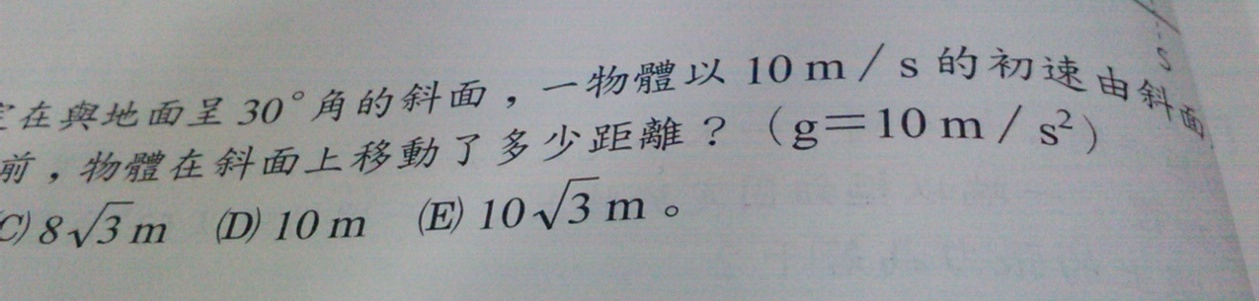 在與地面呈30°角的斜面，一物體以10 m／s的初速由斜面
前，物體在斜面上移動了多少距離？（g＝10 m／s²）
(C) 8√3 m (D) 10 m (E) 10√3 m。